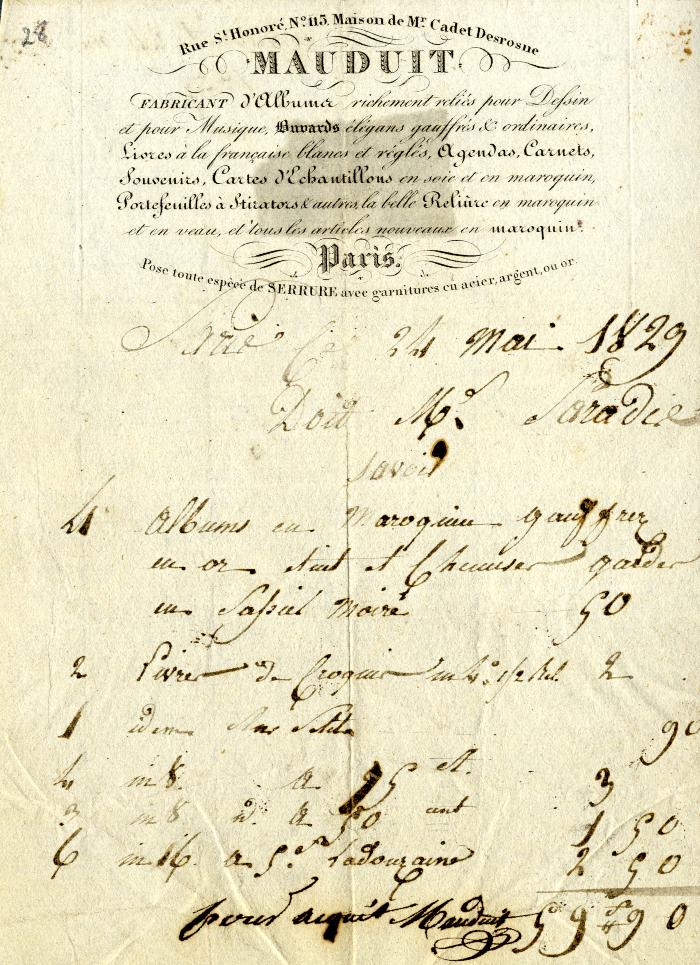 28
Rue St. Honoré, No. 115, Maison de Mr. Cadet Desrosne
MAUDUIT
FABRICANT d'Albums richement reliés pour Dessin
et pour Musique, Buvards élégans gauffrés & ordinaires,
Livres à la française blancs et réglés, Agendas, Carnets,
Souvenirs, Cartes d'Echantillons en soie et en maroquin,
Portefeuilles à Stirators & autres, la belle Reliûre en maroquin
et en veau, et tous les articles nouveaux en maroquin.
Paris.
Pose toute espèce de SERRURE avec garnitures en acier, argent, ou or.
Paris Ce 24 Mai 1829
Doit Mr. Paradis
Savoir
4 Albums en Maroquin gauffrez
en or étuit et Chemises gardes
en Papiel Moiré 50
2 Livres de Croquis in 4o. 1/2 Rel. 2
1 idem plus petite 90
4 in 8. a 75 et. 3
3 in 8 id. a 50 cent 1 50
6 in 16. a 5 f. la douzaine 2 50
pour acquit Mauduit 59 f 90